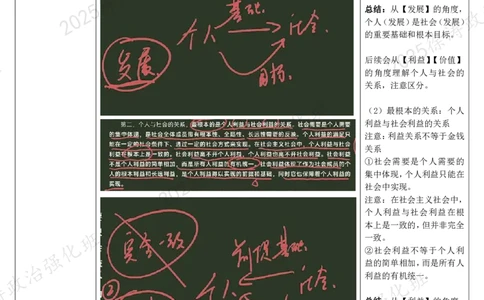 总结：从【发展】的角度，
个人（发展）是社会（发展）
的重要基础和根本目标。
后续会从【利益】【价值】
的角度理解个人与社会的
关系，注意区分。
基础
个人
社会
发展
目标
第二，个人与社会的关系，最根本的是个人利益与社会利益的关系。社会需要是个人需要
的集中体现，是社会全体成员带有根本性、全局性、长远性需要的反映。个人利益的满足只
能在一定的社会条件下、通过一定的社会方式来实现。在社会主义社会中，个人利益与社会
利益在根本上是一致的。社会利益离不开个人利益，个人利益也离不开社会利益。社会利益
不是个人利益的简单相加，而是所有人利益的有机统一。社会利益体现了作为社会成员的个
人的根本利益和长远利益，是个人利益得以实现的前提和基础，同时它也保障着个人利益的
实现。
（2）最根本的关系：个人
利益与社会利益的关系
注意：利益关系不等于金钱
关系
①社会需要是个人需要的
集中体现，个人利益只能在
社会中实现。
注意：在社会主义社会中，
个人利益与社会利益在根
本上是一致的，但并非完全
一致。
②社会利益不等于个人利
益的简单相加，而是所有人
利益的有机统一。
完全一致
前提基础
②
个人
社会
总结：从【利益】的角度，